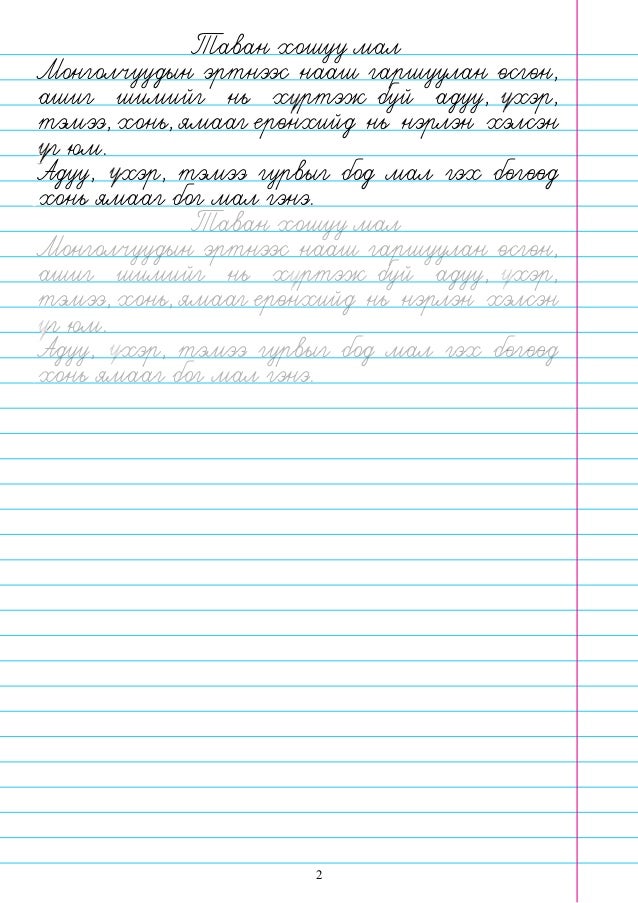 Таван хошуу мал
Монголчуудын эртнээс нааш гаршуулан өсгөн,
ашиг шимийг нь хүртэж буй адуу, үхэр,
тэмээ, хонь, ямааг ерөнхийд нь нэрлэн хэлсэн
үг юм.
Адуу, үхэр, тэмээ гурвыг бод мал гэх бөгөөд
хонь ямааг бог мал гэнэ.
Таван хошуу мал
Монголчуудын эртнээс нааш гаршуулан өсгөн,
ашиг шимийг нь хүртэж буй адуу, үхэр,
тэмээ, хонь, ямааг ерөнхийд нь нэрлэн хэлсэн
үг юм.
Адуу, үхэр, тэмээ гурвыг бод мал гэх бөгөөд
хонь ямааг бог мал гэнэ.
2